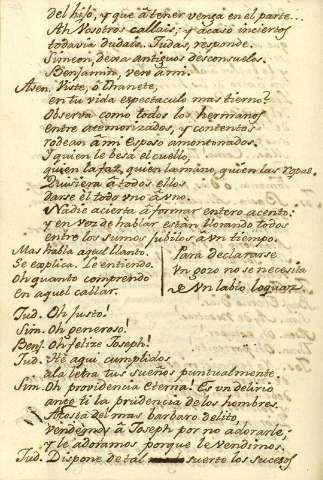 del hijo, y que â tener venga en el parte...
Ah Vosotros callais; y acaso inciertos
todavia dudais. Judas, responde.
Simeon, dexa antiguos desconsuelos.
Benjamin, ven â mi.
Asen. Viste, ô Thanete,
en tu vida espectaculo mas tierno?
Observa como todos los hermanos
entre atemorizados, y contentos
rodean â mi Esposo amontonados.
Quien le besa el cuello,
quien la faz, quien la mano, quien las ropas.
Quisiera â todos ellos
darse êl todo uno â uno.
Nadie acierta â formar entero acento:
y en vez de hablar estàn llorando todos
entre los sumos jubilos â un tiempo.
Mas habla aquel llanto.
Se explica. Le entiendo.
Oh quanto comprendo
En aquel callar.
Para declararse
Un pozo no se necesita
De Un labio loquaz
Jud. Oh justo!
Sim. Oh generoso!
Benj. Oh felize Joseph!
Jud. Hê aqui cumplidos
â la letra tus sueños puntualmente.
Sim. Oh providencia eterna! Es un delirio
ante ti la prudencia de los hombres.
Â costa del mas barbaro delito
vendemos â Joseph por no adorarle;
y le adoramos porque le vendimos.
Jud. Dispone de tal suerte los sucesos